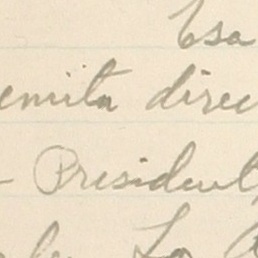 Esa
emita direc
- President
La